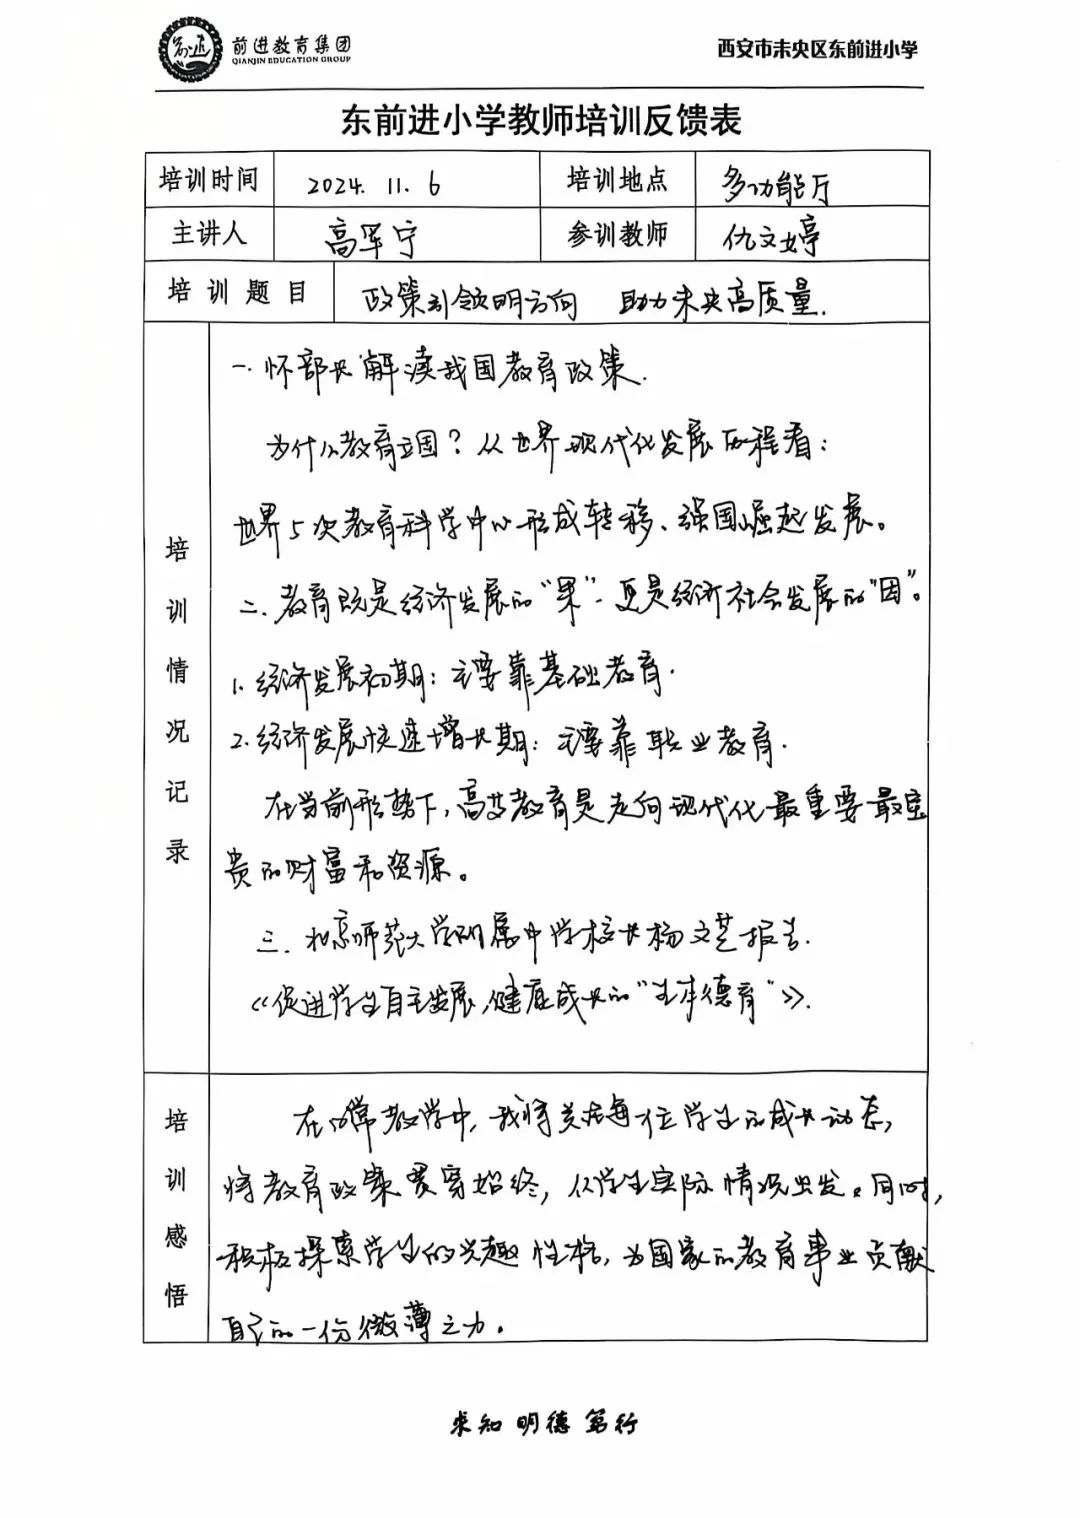 前进教育集团
QIANJIN EDUCATION GROUP
西安市未央区东前进小学
东前进小学教师培训反馈表
培训时间 2024. 11. 6 培训地点 多功能厅
主讲人 高军宁 参训教师 仇文婷
培训题目 政策引领明方向 助力未央高质量.
培训情况记录
一. 怀部长解读我国教育政策.
为什么教育立国？从世界现代化发展历程看：
世界5次教育科学中心形成转移、强国崛起发展。
二. 教育既是经济发展的“果”. 更是经济社会发展的“因”。
1. 经济发展初期：主要靠基础教育.
2. 经济发展快速增长期：主要靠职业教育.
在当前形势下，高等教育是走向现代化最重要最宝
贵的财富和资源。
三. 北京师范大学附属中学校长杨文芝报告.
《促进学生自主发展，健康成长的“生本德育”》.
培训感悟
在日常教学中，我将关注每位学生的成长动态，
将教育政策贯穿始终，从学生实际情况出发。同时，
积极探索学生的兴趣性格，为国家的教育事业贡献
自己的一份微薄之力.
求知 明德 笃行